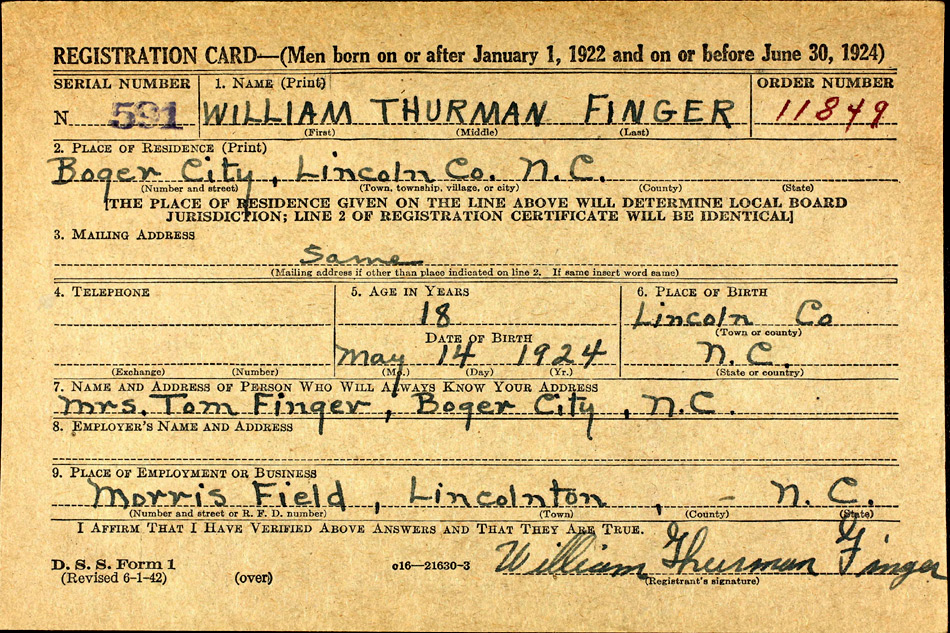 REGISTRATION CARD—(Men born on or after January 1, 1922 and on or before June 30, 1924)
SERIAL NUMBER 1. NAME (Print) ORDER NUMBER
N 591 WILLIAM THURMAN FINGER 11849
(First) (Middle) (Last)
2. PLACE OF RESIDENCE (Print)
Boger City, Lincoln Co. N.C.
(Number and street) (Town, township, village, or city) (County) (State)
[THE PLACE OF RESIDENCE GIVEN ON THE LINE ABOVE WILL DETERMINE LOCAL BOARD
JURISDICTION; LINE 2 OF REGISTRATION CERTIFICATE WILL BE IDENTICAL]
3. MAILING ADDRESS
Same
(Mailing address if other than place indicated on line 2. If same insert word same)
4. TELEPHONE 5. AGE IN YEARS 6. PLACE OF BIRTH
18 Lincoln Co
DATE OF BIRTH (Town or county)
May 14 1924 N.C.
(Exchange) (Number) (Mo.) (Day) (Yr.) (State or country)
7. NAME AND ADDRESS OF PERSON WHO WILL ALWAYS KNOW YOUR ADDRESS
Mrs. Tom Finger, Boger City, N.C.
8. EMPLOYER'S NAME AND ADDRESS
9. PLACE OF EMPLOYMENT OR BUSINESS
Morris Field, Lincolnton, – N.C.
(Number and street or R. F. D. number) (Town) (County) (State)
I AFFIRM THAT I HAVE VERIFIED ABOVE ANSWERS AND THAT THEY ARE TRUE.
William Thurman Finger
D. S. S. Form 1
(Revised 6-1-42) (over) o16—21630-3 (Registrant's signature)